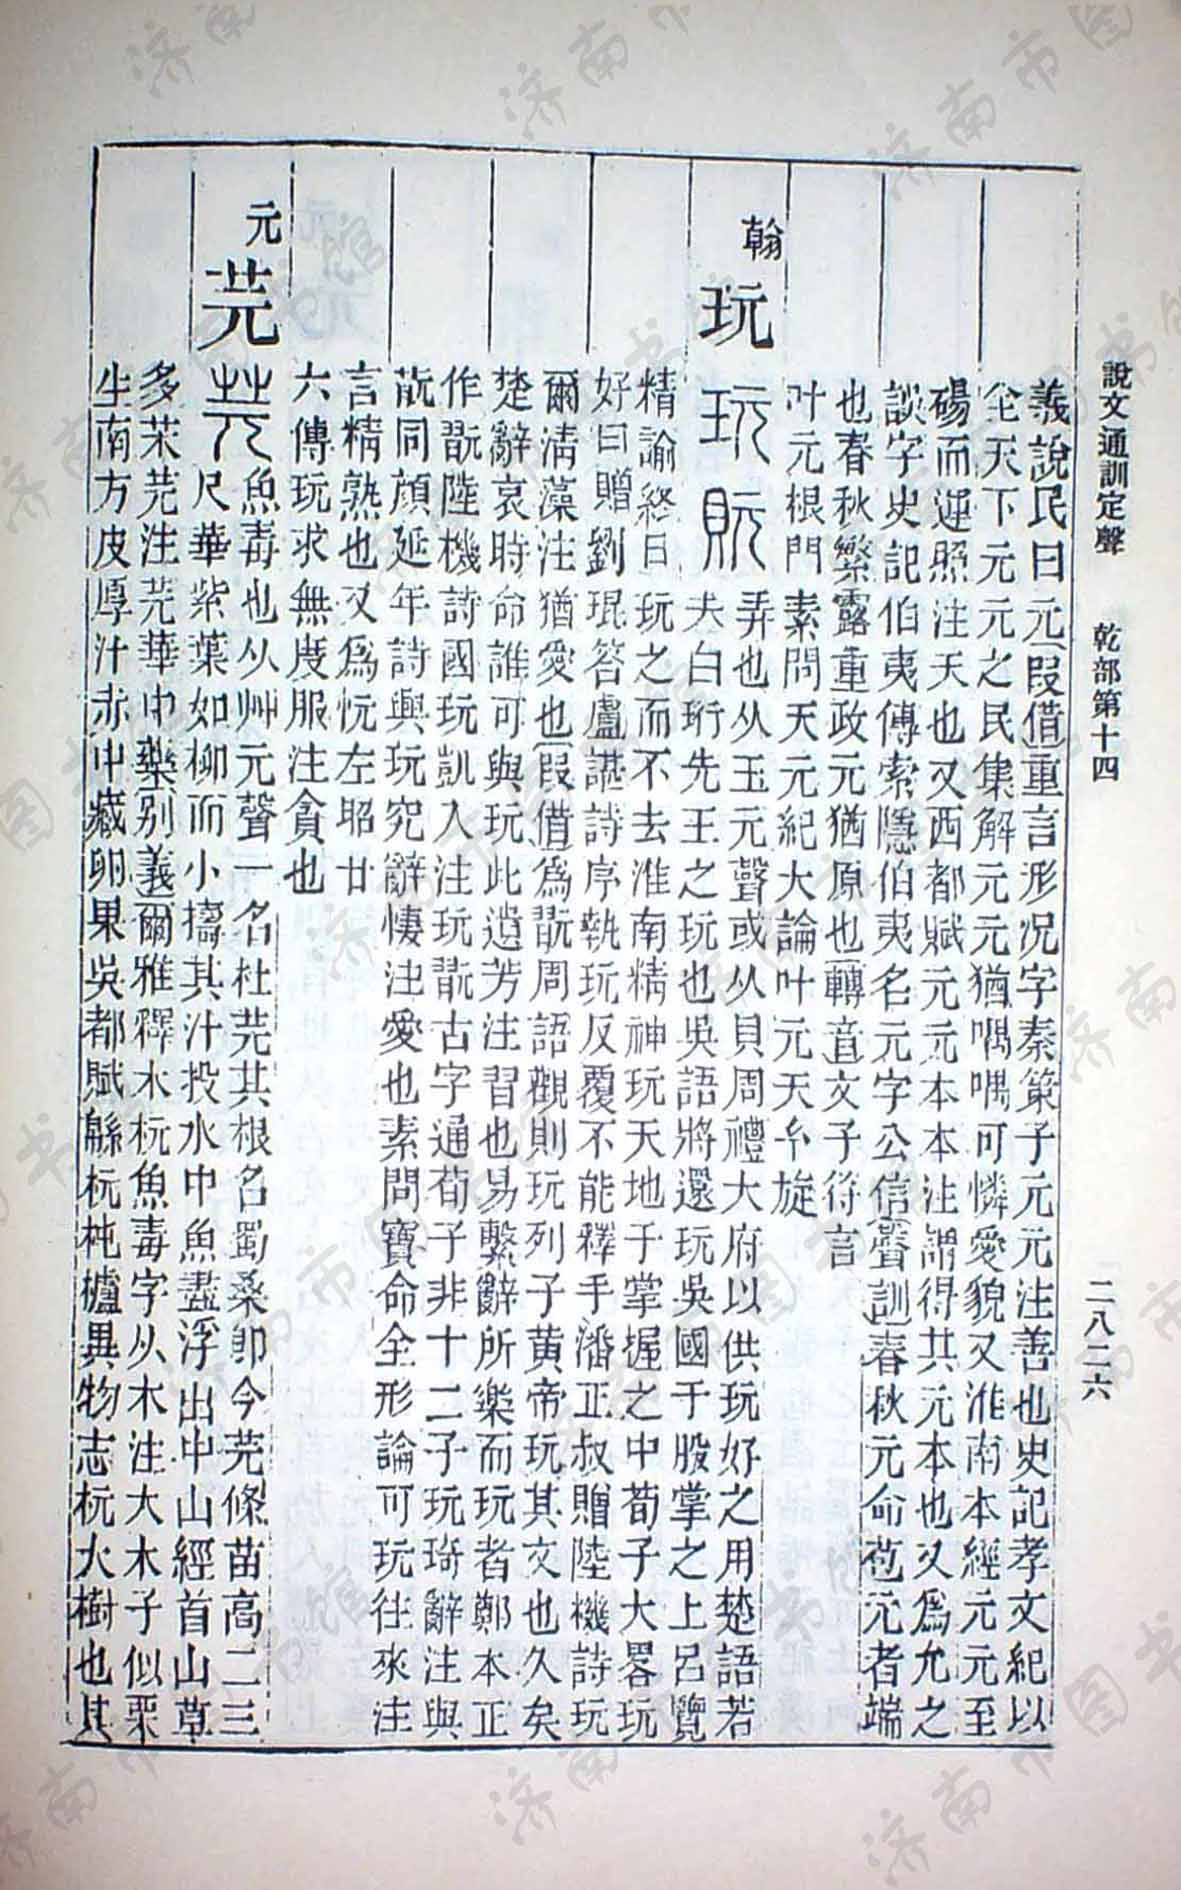 說文通訓定聲 乾部第十四 二八二六
義說民曰元〔叚借〕重言形况字秦策子元元注善也史記孝文紀以
全天下元元之民集解元元猶喁喁可憐愛貌又淮南本經元元至
碭而運照注天也又西都賦元元本本注謂得其元本也又爲允之
誤字史記伯夷傳索隱伯夷名元字公信〔聲訓〕春秋元命苞元者端
也春秋繁露重政元猶原也〔轉音〕文子符言
叶元根門素問天元紀大論叶元天㐃旋
翰
玩
弄也从玉元聲或从貝周禮大府以供玩好之用楚語若
夫白珩先王之玩也吳語將還玩吳國于股掌之上呂覽
精諭終日玩之而不去淮南精神玩天地于掌握之中荀子大畧玩
好曰贈劉琨答盧諶詩序執玩反覆不能釋手潘正叔贈陸機詩玩
爾清藻注猶愛也〔叚借〕爲翫周語觀則玩列子黃帝玩其文也久矣
楚辭哀時命誰可與玩此遺芳注習也易繫辭所樂而玩者鄭本正
作翫陸機詩國玩凱入注玩翫古字通荀子非十二子玩琦辭注與
翫同顔延年詩興玩究辭悽注愛也素問寶命全形論可玩往來注
言精熟也又爲忨左昭廿
六傳玩求無度服注貪也
元
芫
魚毒也从艸元聲一名杜芫其根名蜀桑卽今芫條苗高二三
尺華紫葉如柳而小擣其汁投水中魚盡浮出中山經首山草
多荗芫注芫華中藥〔别義〕爾雅釋木杬魚毒字从木注大木子似栗
生南方皮厚汁赤中藏卵果吳都賦緜杬杶櫨異物志杬大樹也其